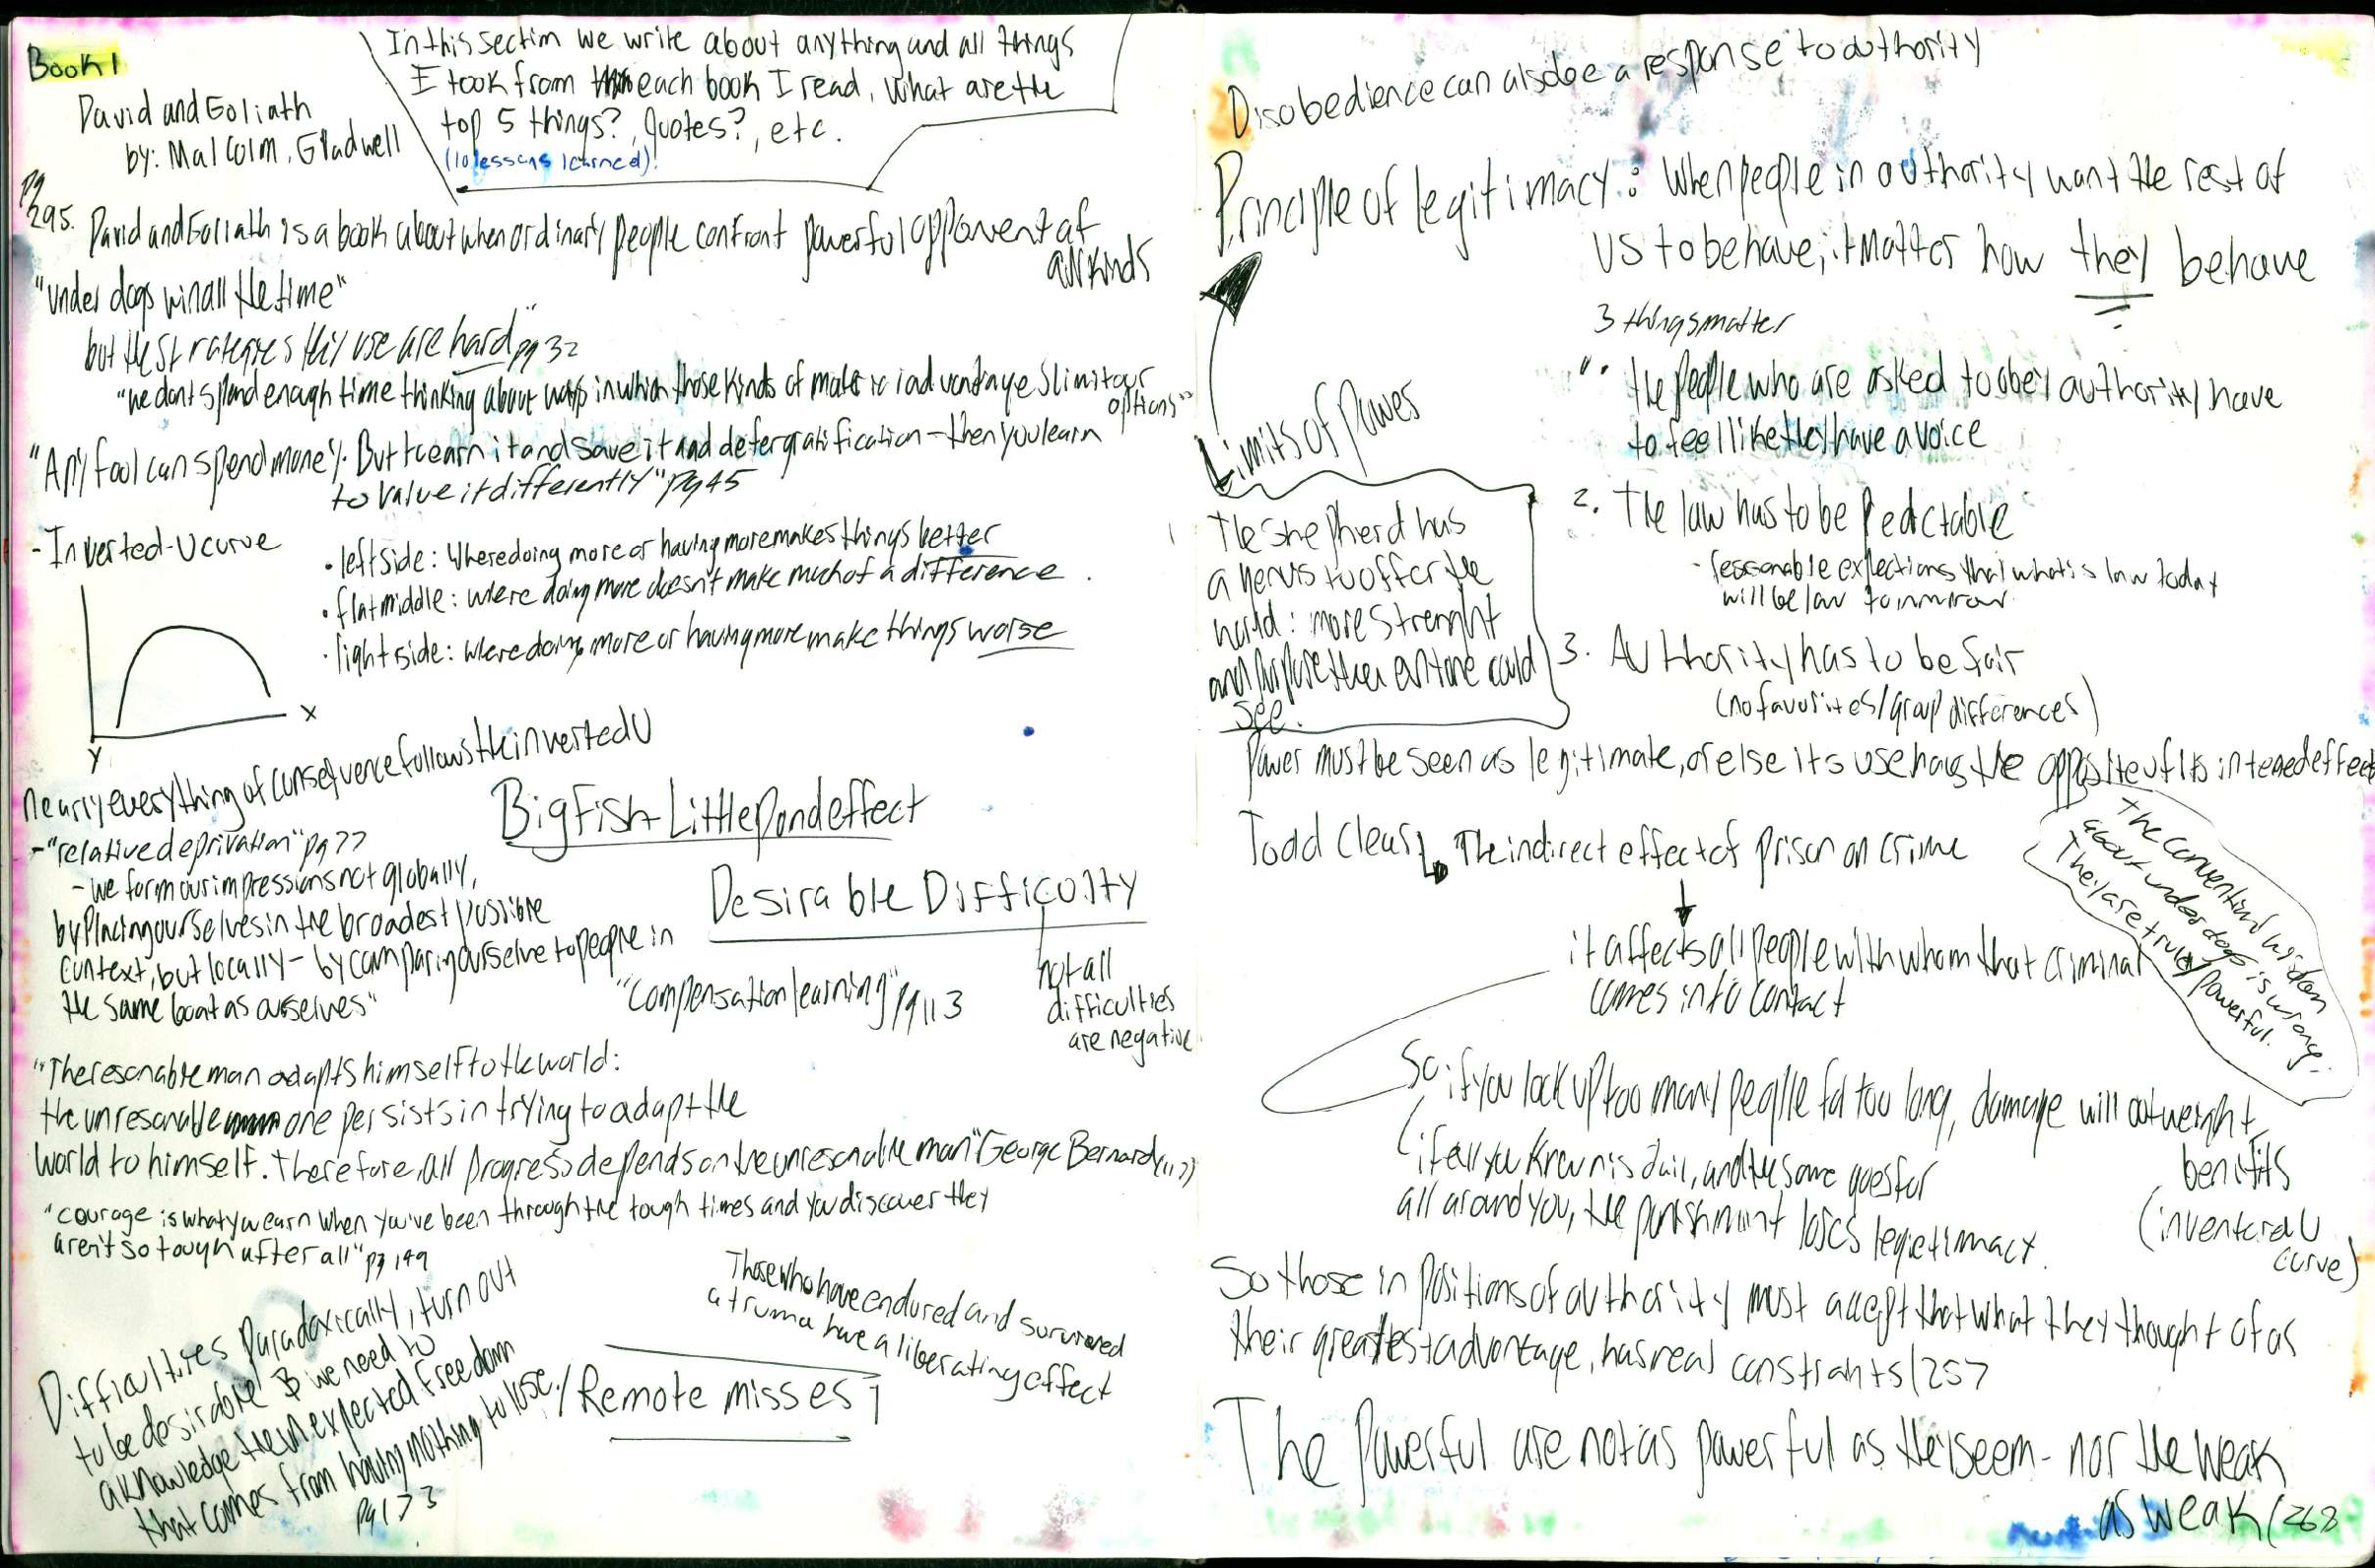 Book 1
David and Goliath
by: Malcolm. Gladwell
In this section we write about anything and all things
I took from each book I read, what are the
top 5 things?, Quotes?, etc.
(10 lessons learned)!
pg 295.
David and Goliath is a book about when ordinary people confront powerful opponent of
all kinds
"under dogs win all the time"
but the strategies they use are hard" pg 32
"we dont spend enough time thinking about ways in which those kinds of material advantages limit our
options"
"Any fool can spend money. But to earn it and save it and defer gratification - then you learn
to value it differently" pg 45
- Inverted-U curve
• left side: Where doing more or having more makes things better
• flat middle: where doing more doesn't make much of a difference.
• right side: where doing more or having more make things worse
X
Y
nearly everything of consequence follows the inverted U
Big Fish-Little Pond effect
- "relative deprivation" pg 77
- we form our impressions not globally,
by placing ourselves in the broadest possible
context, but locally - by comparing ourselve to people in
the same boat as ourselves"
Desirable Difficulty
not all
difficulties
are negative
"compensation learning" pg 113
"The resonable man adapts himself to the world:
the unresonable one persists in trying to adapt the
world to himself. Therefore, all progress depends on the unresonable man" George Bernard (117)
"courage is what you earn when you've been through the tough times and you discover they
aren't so tough after all" pg 149
Difficultires paradoxically, turn out
to be desirable & we need to
aknowledge the unexpected freedom
that comes from having nothing to lose./
pg 173
Those who have endured and survived
a truma have a liberating effect
Remote misses
Disobedience can also be a response to authority
Principle of legitimacy: When people in authority want the rest of
us to behave; it matter how they behave
3 things matter
1. the people who are asked to obey authority have
to feel like they have a voice
2. The law has to be Pedctable
- reasonable expections that whats is law today
will be law tommorow
3. Authority has to be fair
(no favorites/group differences)
Limits of Power
The Shepherd has
a nervs to offer the
world: more strenght
and purpose then anyone could
see.
Power must be seen as legitimate, or else its use has the opposite of its intened effect
Todd Clear
The indirect effect of prison on crime
it affects all people with whom that criminal
comes into contact
The conventional wisdom
about underdogs is wrong.
They are truly powerful.
So, if you lock up too many people for too long, damage will outweight
benifits
(inverterd U
curve)
(if all you know is Jail, and the same goes for
all around you, the punishment loses legietimacy.
So those in positions of authority must accept that what they thought of as
their greatest advantage, has real constraints (257
The Powerful are not as powerful as they seem - nor the weak
as weak (268